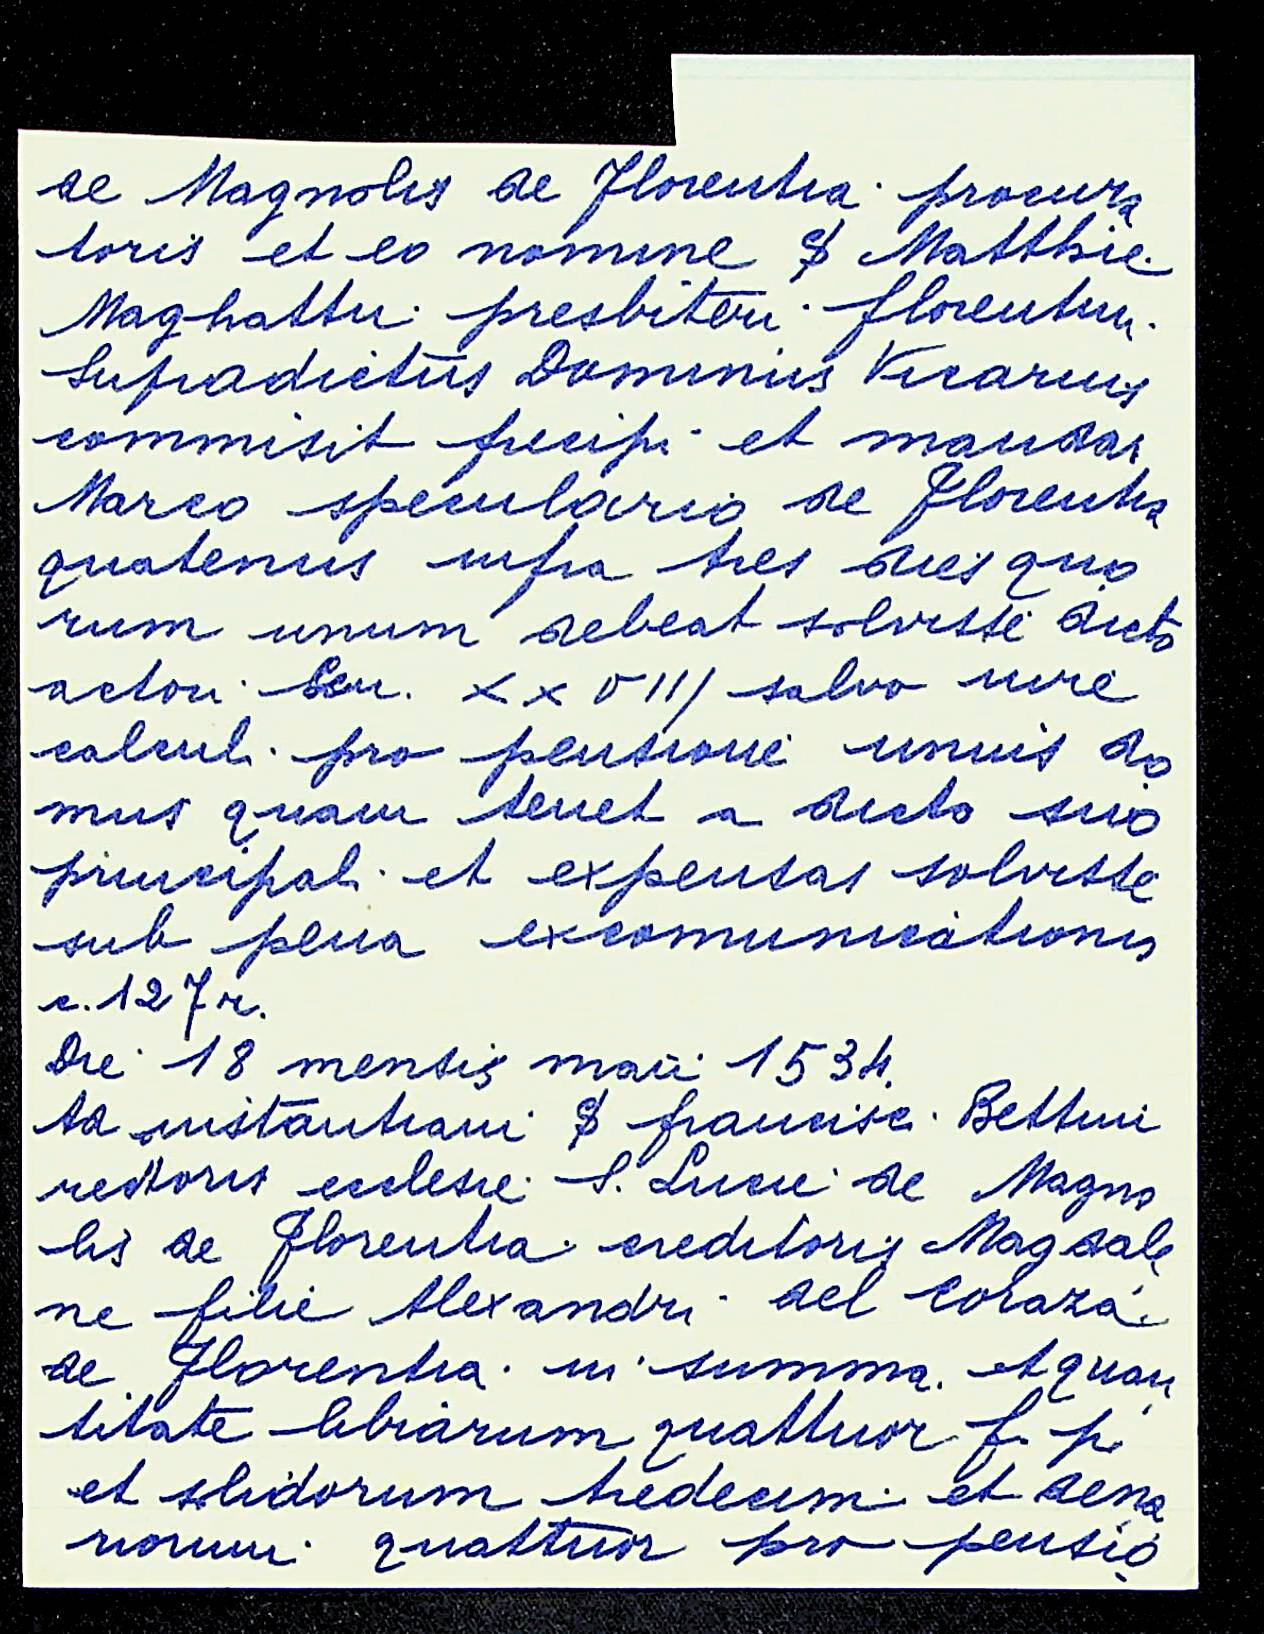 de Magnolis de Florentia procura
toris et eo nomine $ Matthie
Maghattii presbiteri florentin.
Supradictus Dominus Vicarius
commisit precipi et mandari
Marco speculario de Florentia
quatenus infra tres dies quo
rum unum debeat solvisse dicto
actori Scu. XXVIII salvo iure
calculi pro pensione unius do
mus quam tenet a dicto suo
principali et expensas solvisse
sub pena excomunicationis
c. 127r.
Die 18 mensis maii 1534.
Ad instantiam $ francisci Bettini
rectoris ecclesie S. Lucie de Magno
lis de Florentia creditoris Magdale
ne filie Alexandri del Coraza
de Florentia in summa et quan
titate librarum quattuor f. p.
et solidorum tredecim et dena
riorum quattuor pro pensio